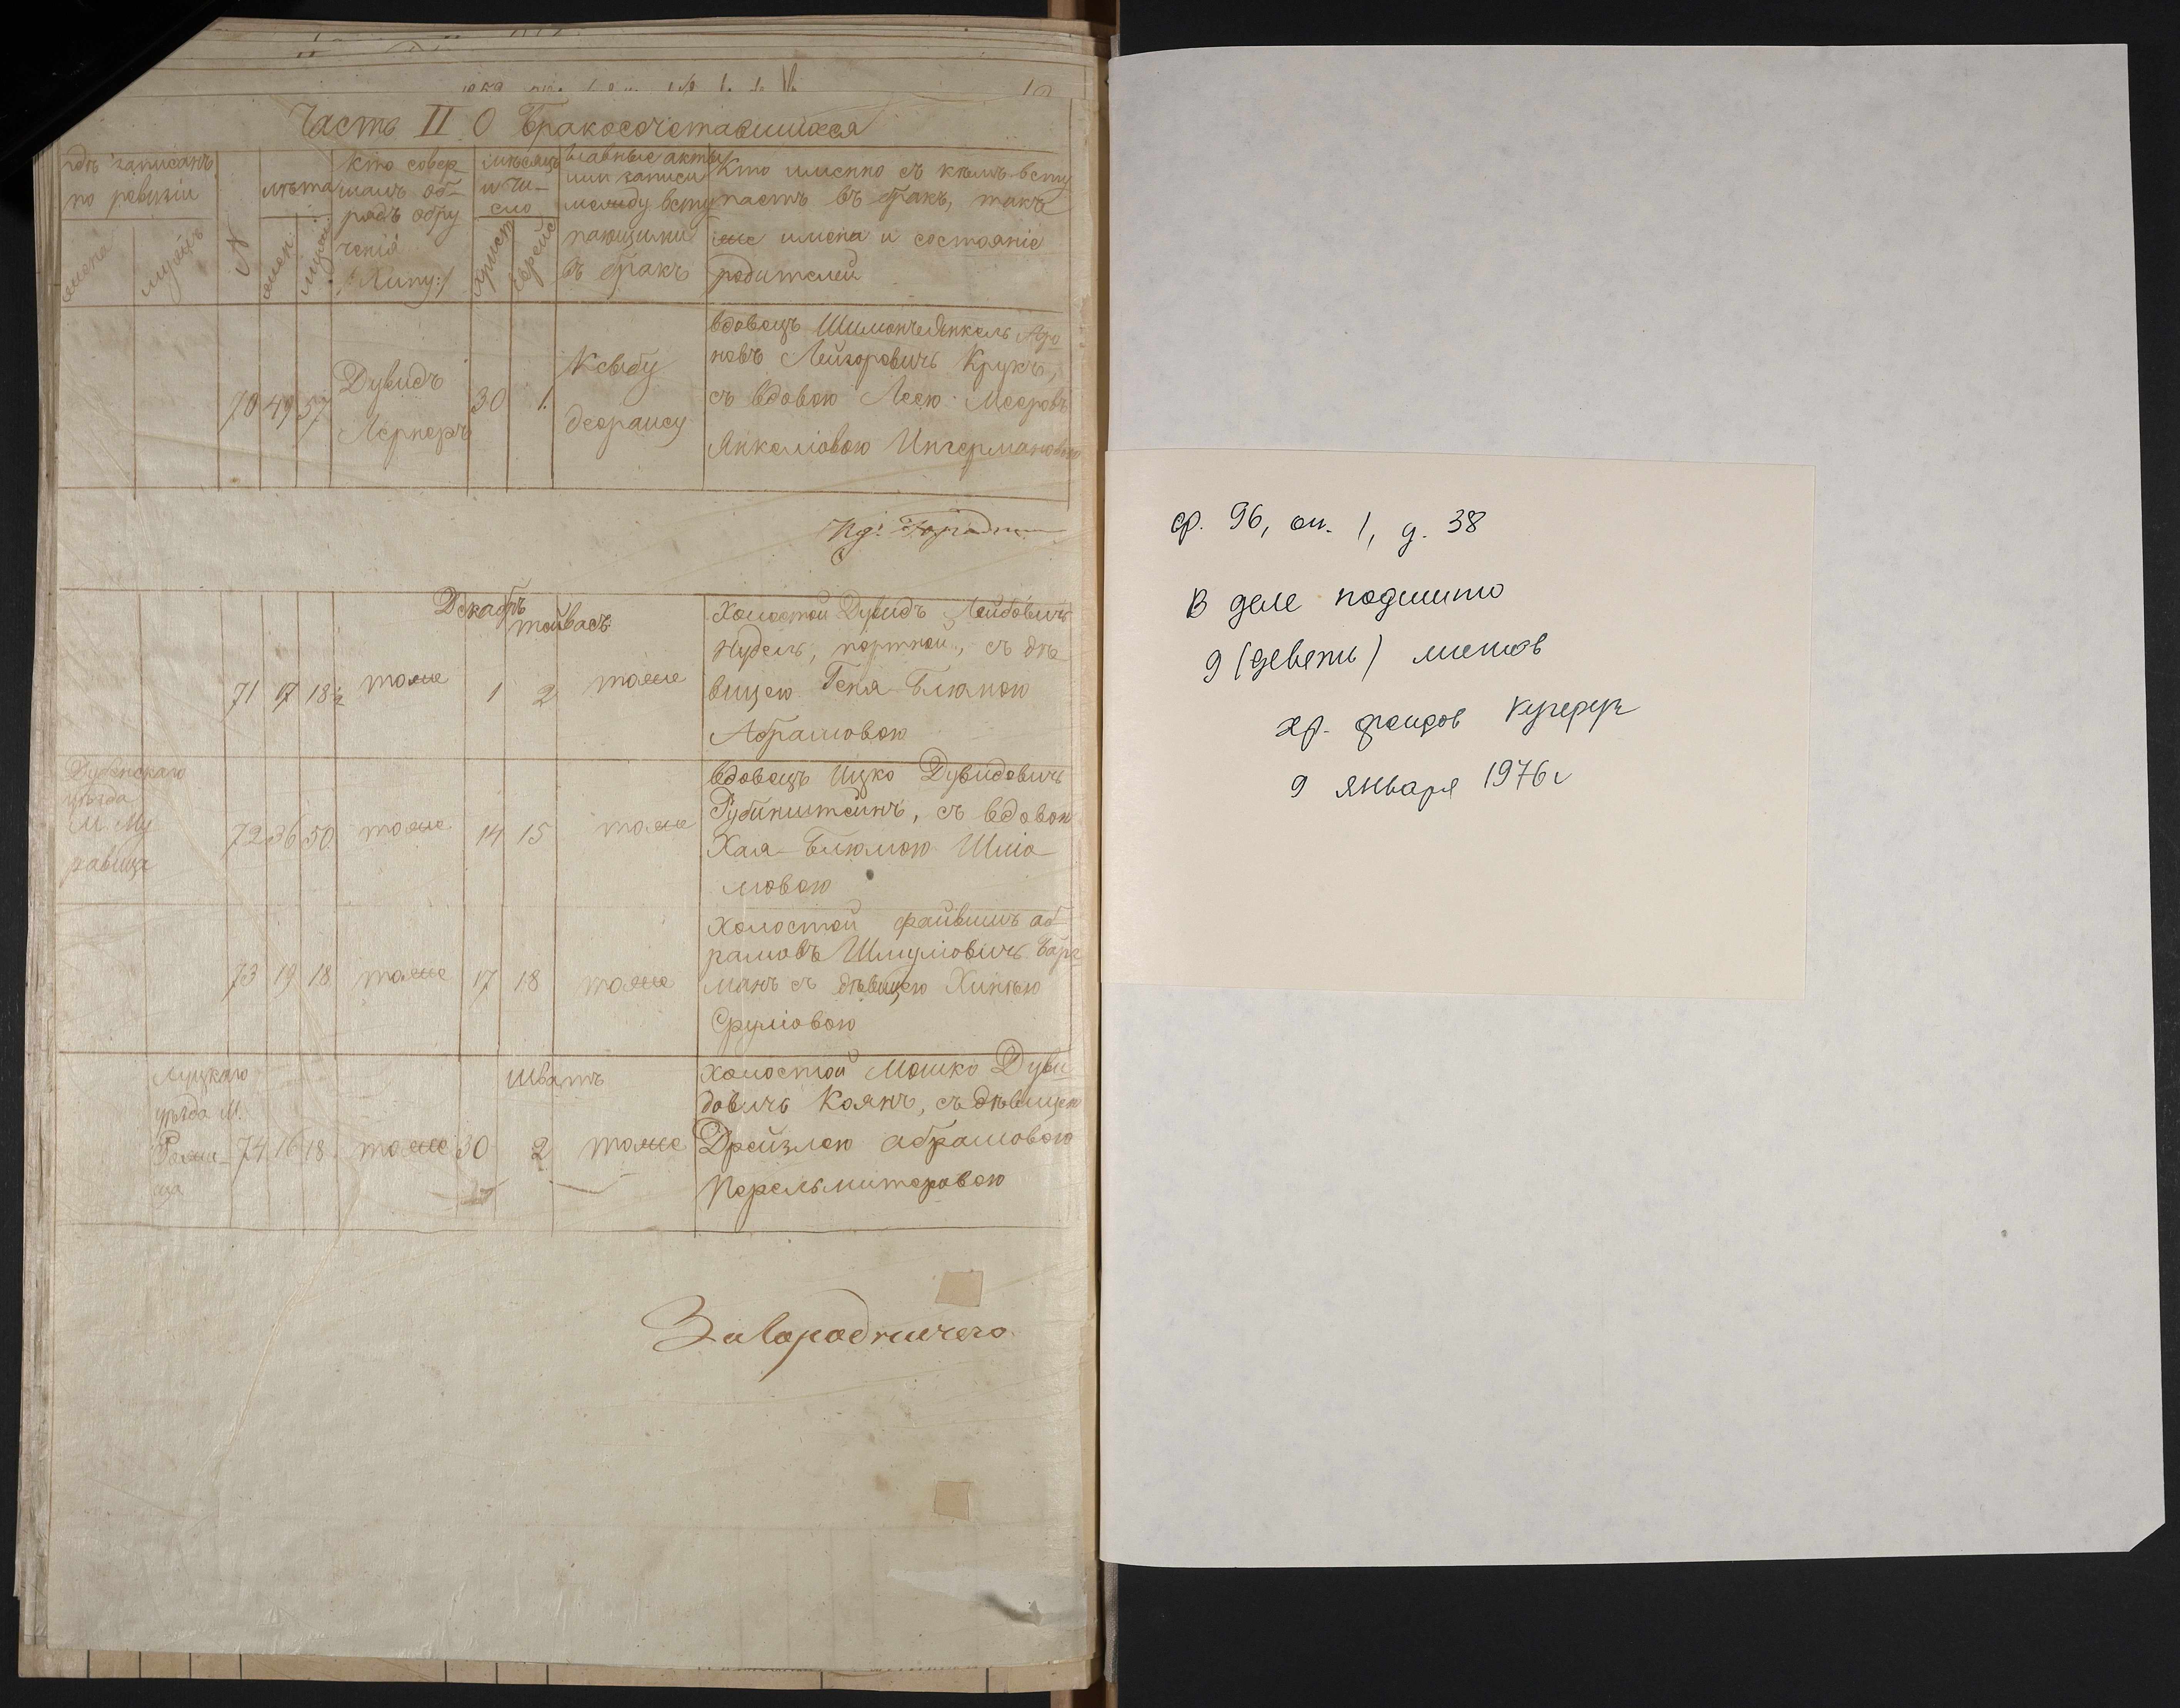 Часть II О Бракосочетавшихся
гдѣ записанъ
по ревизіи
жена
мужъ
№
лѣта
жен.
муж.
Кто совер
шалъ об-
рядъ обру
ченія
/:Хипу:/
мѣсяцъ
и чи-
сло
христ
еврейс
главные акты
или записи
между всту
пающими
въ бракъ
Кто именно съ кѣмъ всту
паетъ въ бракъ, такъ
же имена и состояніе
родителей
70 49 57 Дувидъ
Лернеръ
30 1.
Ксыбу
деораису
вдовецъ Шимонъ Янкель Аро
новъ Лейзоровичъ Крукъ,
съ вдовою Леею Мееровъ
Янкеліовою Ингермановою
Декабрь
тойвасъ
71 17 18½ тоже 1 2 тоже
Холостой Дувидъ Лейбовичъ
Нудель, портной, съ дѣ
вицею Геня-Блюмою
Абрамовою
Дубенскаго
уѣзда
М. Му
равица
72 36 50 тоже 14 15 тоже
вдовецъ Ицко Дувидовичъ
Рубинштейнъ, съ вдовою
Хая-Блюмою Шліо-
мовою
73 19 18 тоже 17 18 тоже
Холостой файвишъ аб
рамовъ Шмуліовичъ Барг
манъ съ дѣвицею Хинею
Сруліовою
Луцкаго
уѣзда М.
Рожи-
ща
Шватъ
74 16 18 тоже 30 2 тоже
Холостой Мошко Дуви
довичъ Коянъ, съ дѣвицею
Дрейзлею абрамовою
Перельмитеровою
За Городничего
ф. 96, оп. 1, д. 38
В деле подшито
9 (девять) листов
хр. фондов
9 января 1976 г